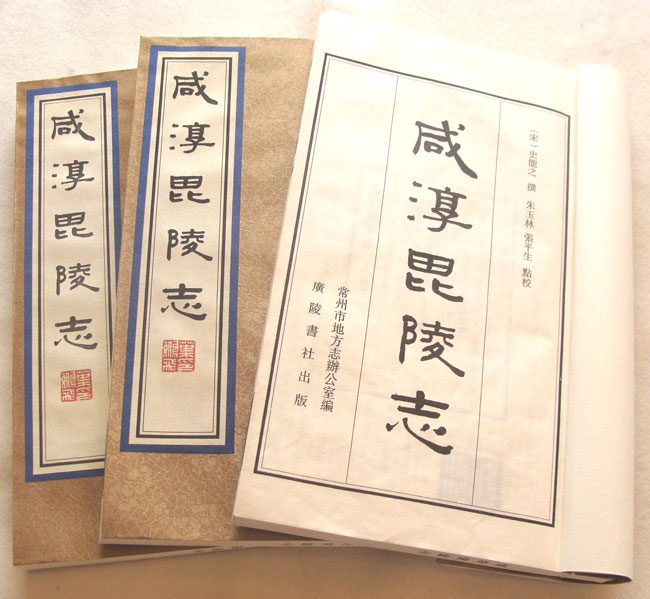 咸淳毘陵志
咸淳毘陵志
（宋）史能之 撰 朱玉林 張平生 點校
咸淳毘陵志
常州市地方志辦公室編
廣陵書社出版